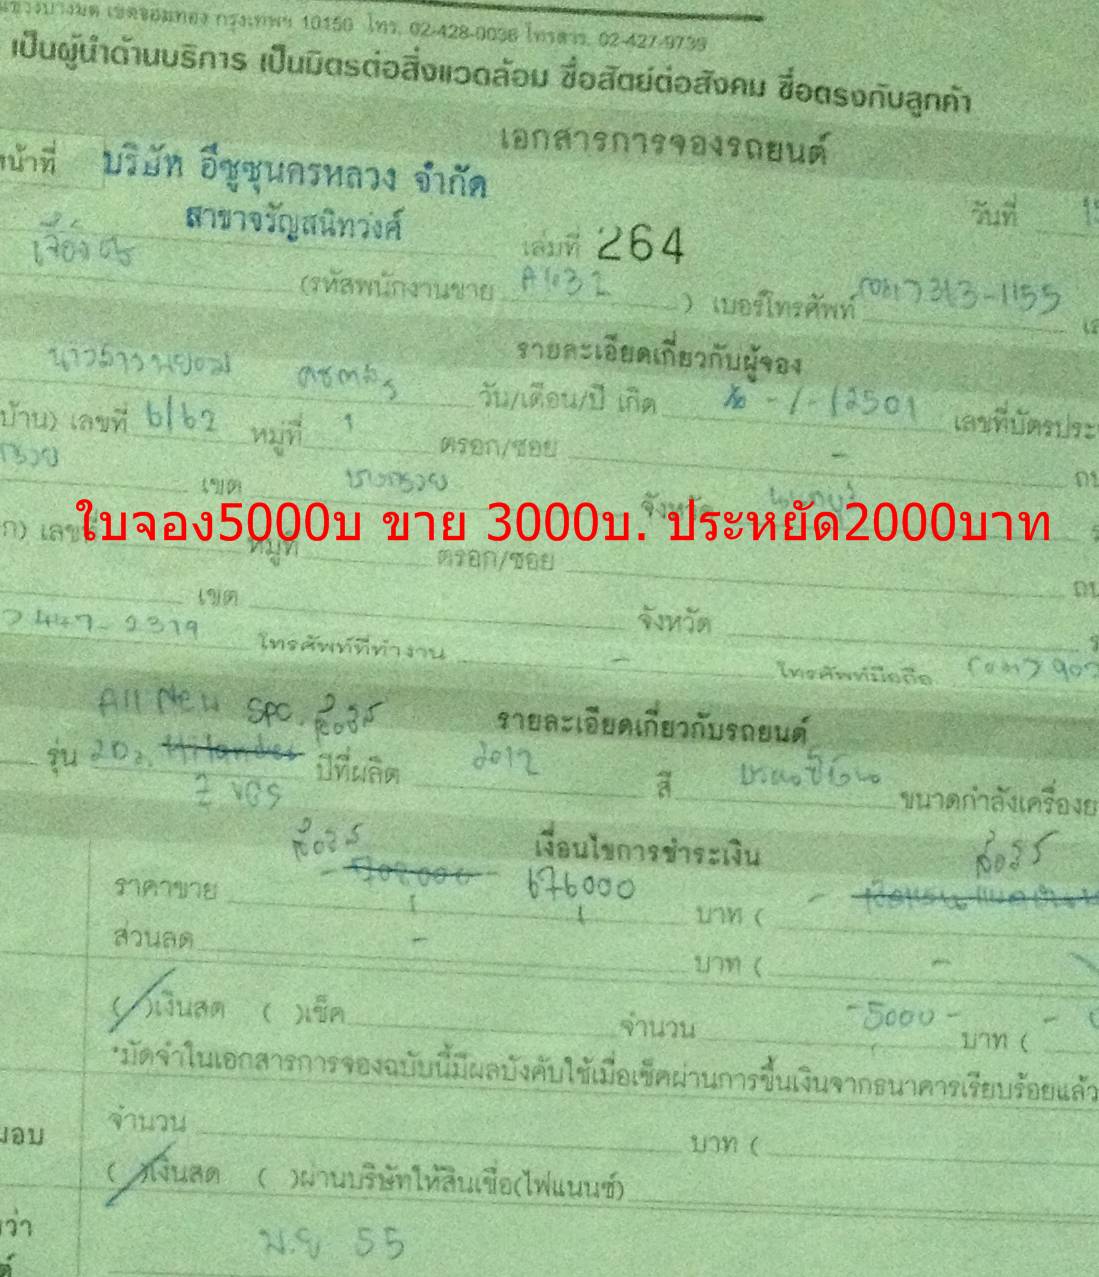 แขวงบางมด เขตจอมทอง กรุงเทพฯ 10150 โทร. 02-428-0038 โทรสาร. 02-427-9739
เป็นผู้นำด้านบริการ เป็นมิตรต่อสิ่งแวดล้อม ซื่อสัตย์ต่อสังคม ซื่อตรงกับลูกค้า
เอกสารการจองรถยนต์
หน้าที่ บริษัท อีซูซุนครหลวง จำกัด
สาขาจรัญสนิทวงศ์ เล่มที่ 264 วันที่
(รหัสพนักงานขาย A432 ) เบอร์โทรศัพท์ 313-1155
รายละเอียดเกี่ยวกับผู้จอง
นางสาว วัน/เดือน/ปี เกิด - / - /2501 เลขที่บัตรประ
บ้าน) เลขที่ 6/62 หมู่ที่ 1 ตรอก/ซอย -
กรวย เขต บางกรวย จังหวัด
ใบจอง5000บ ขาย 3000บ. ประหยัด2000บาท
หมู่ที่ ตรอก/ซอย
เขต จังหวัด
447-2319 โทรศัพท์ที่ทำงาน - โทรศัพท์มือถือ
All New Spc. รายละเอียดเกี่ยวกับรถยนต์
รุ่น ปีที่ผลิต 2012 สี ขนาดกำลังเครื่องย
Z VGS
เงื่อนไขการชำระเงิน
ราคาขาย 676000 บาท (
ส่วนลด - บาท ( -
( / )เงินสด ( )เช็ค จำนวน -5000- บาท ( -
*มัดจำในเอกสารการจองฉบับนี้มีผลบังคับใช้เมื่อเช็คผ่านการขึ้นเงินจากธนาคารเรียบร้อยแล้ว
มอบ จำนวน บาท (
( / )เงินสด ( )ผ่านบริษัทให้สินเชื่อ(ไฟแนนซ์)
ว่า ม.ย 55